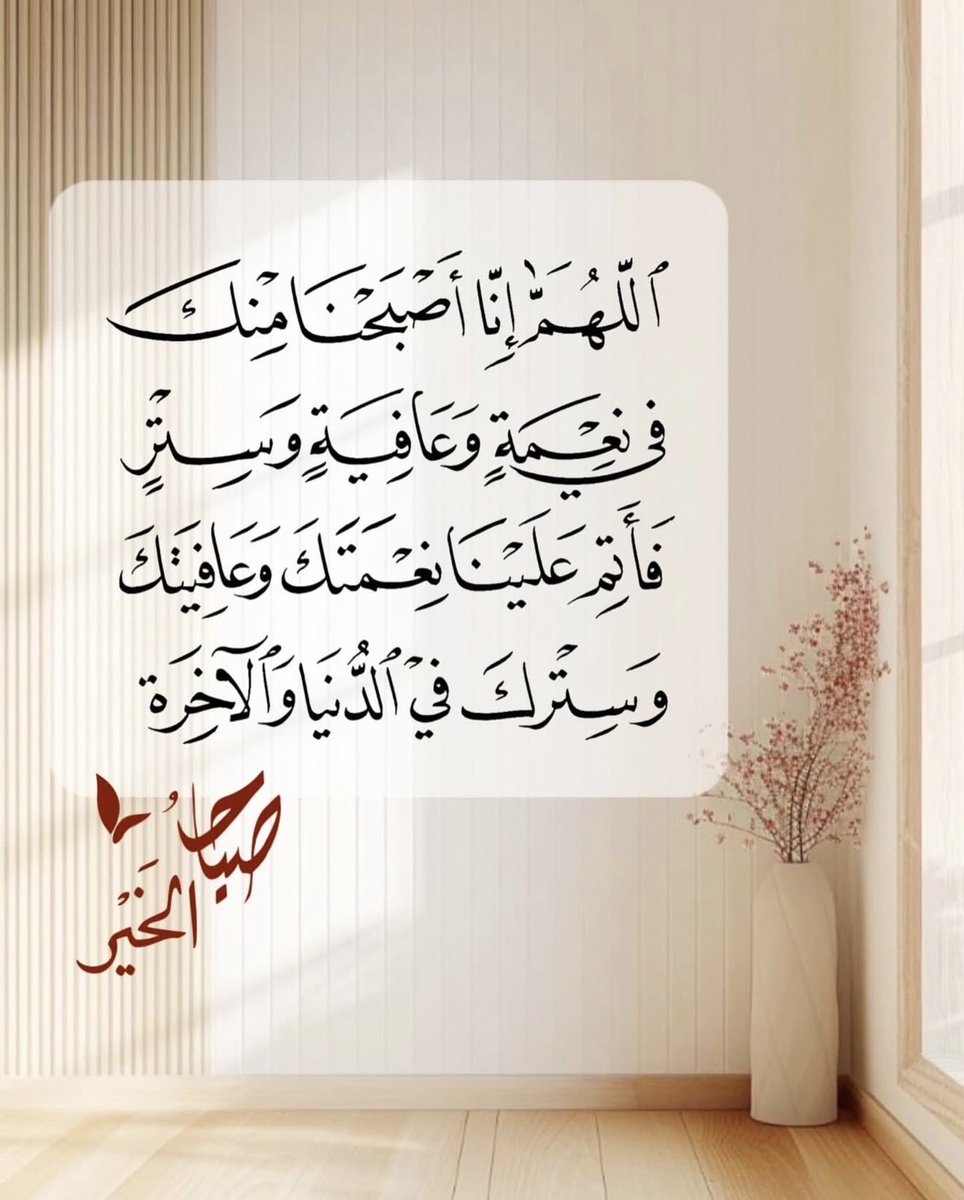 ٱللّٰهُمَّ إِنَّا أَصْبَحْنَا مِنْكَ
فِي نِعْمَةٍ وَعَافِيَةٍ وَسِتْرٍ
فَأَتِمَّ عَلَيْنَا نِعْمَتَكَ وَعَافِيَتَكَ
وَسِتْرَكَ فِيْ ٱلدُّنْيَا وَٱلْآخِرَة
صباحُ
الخَيْر